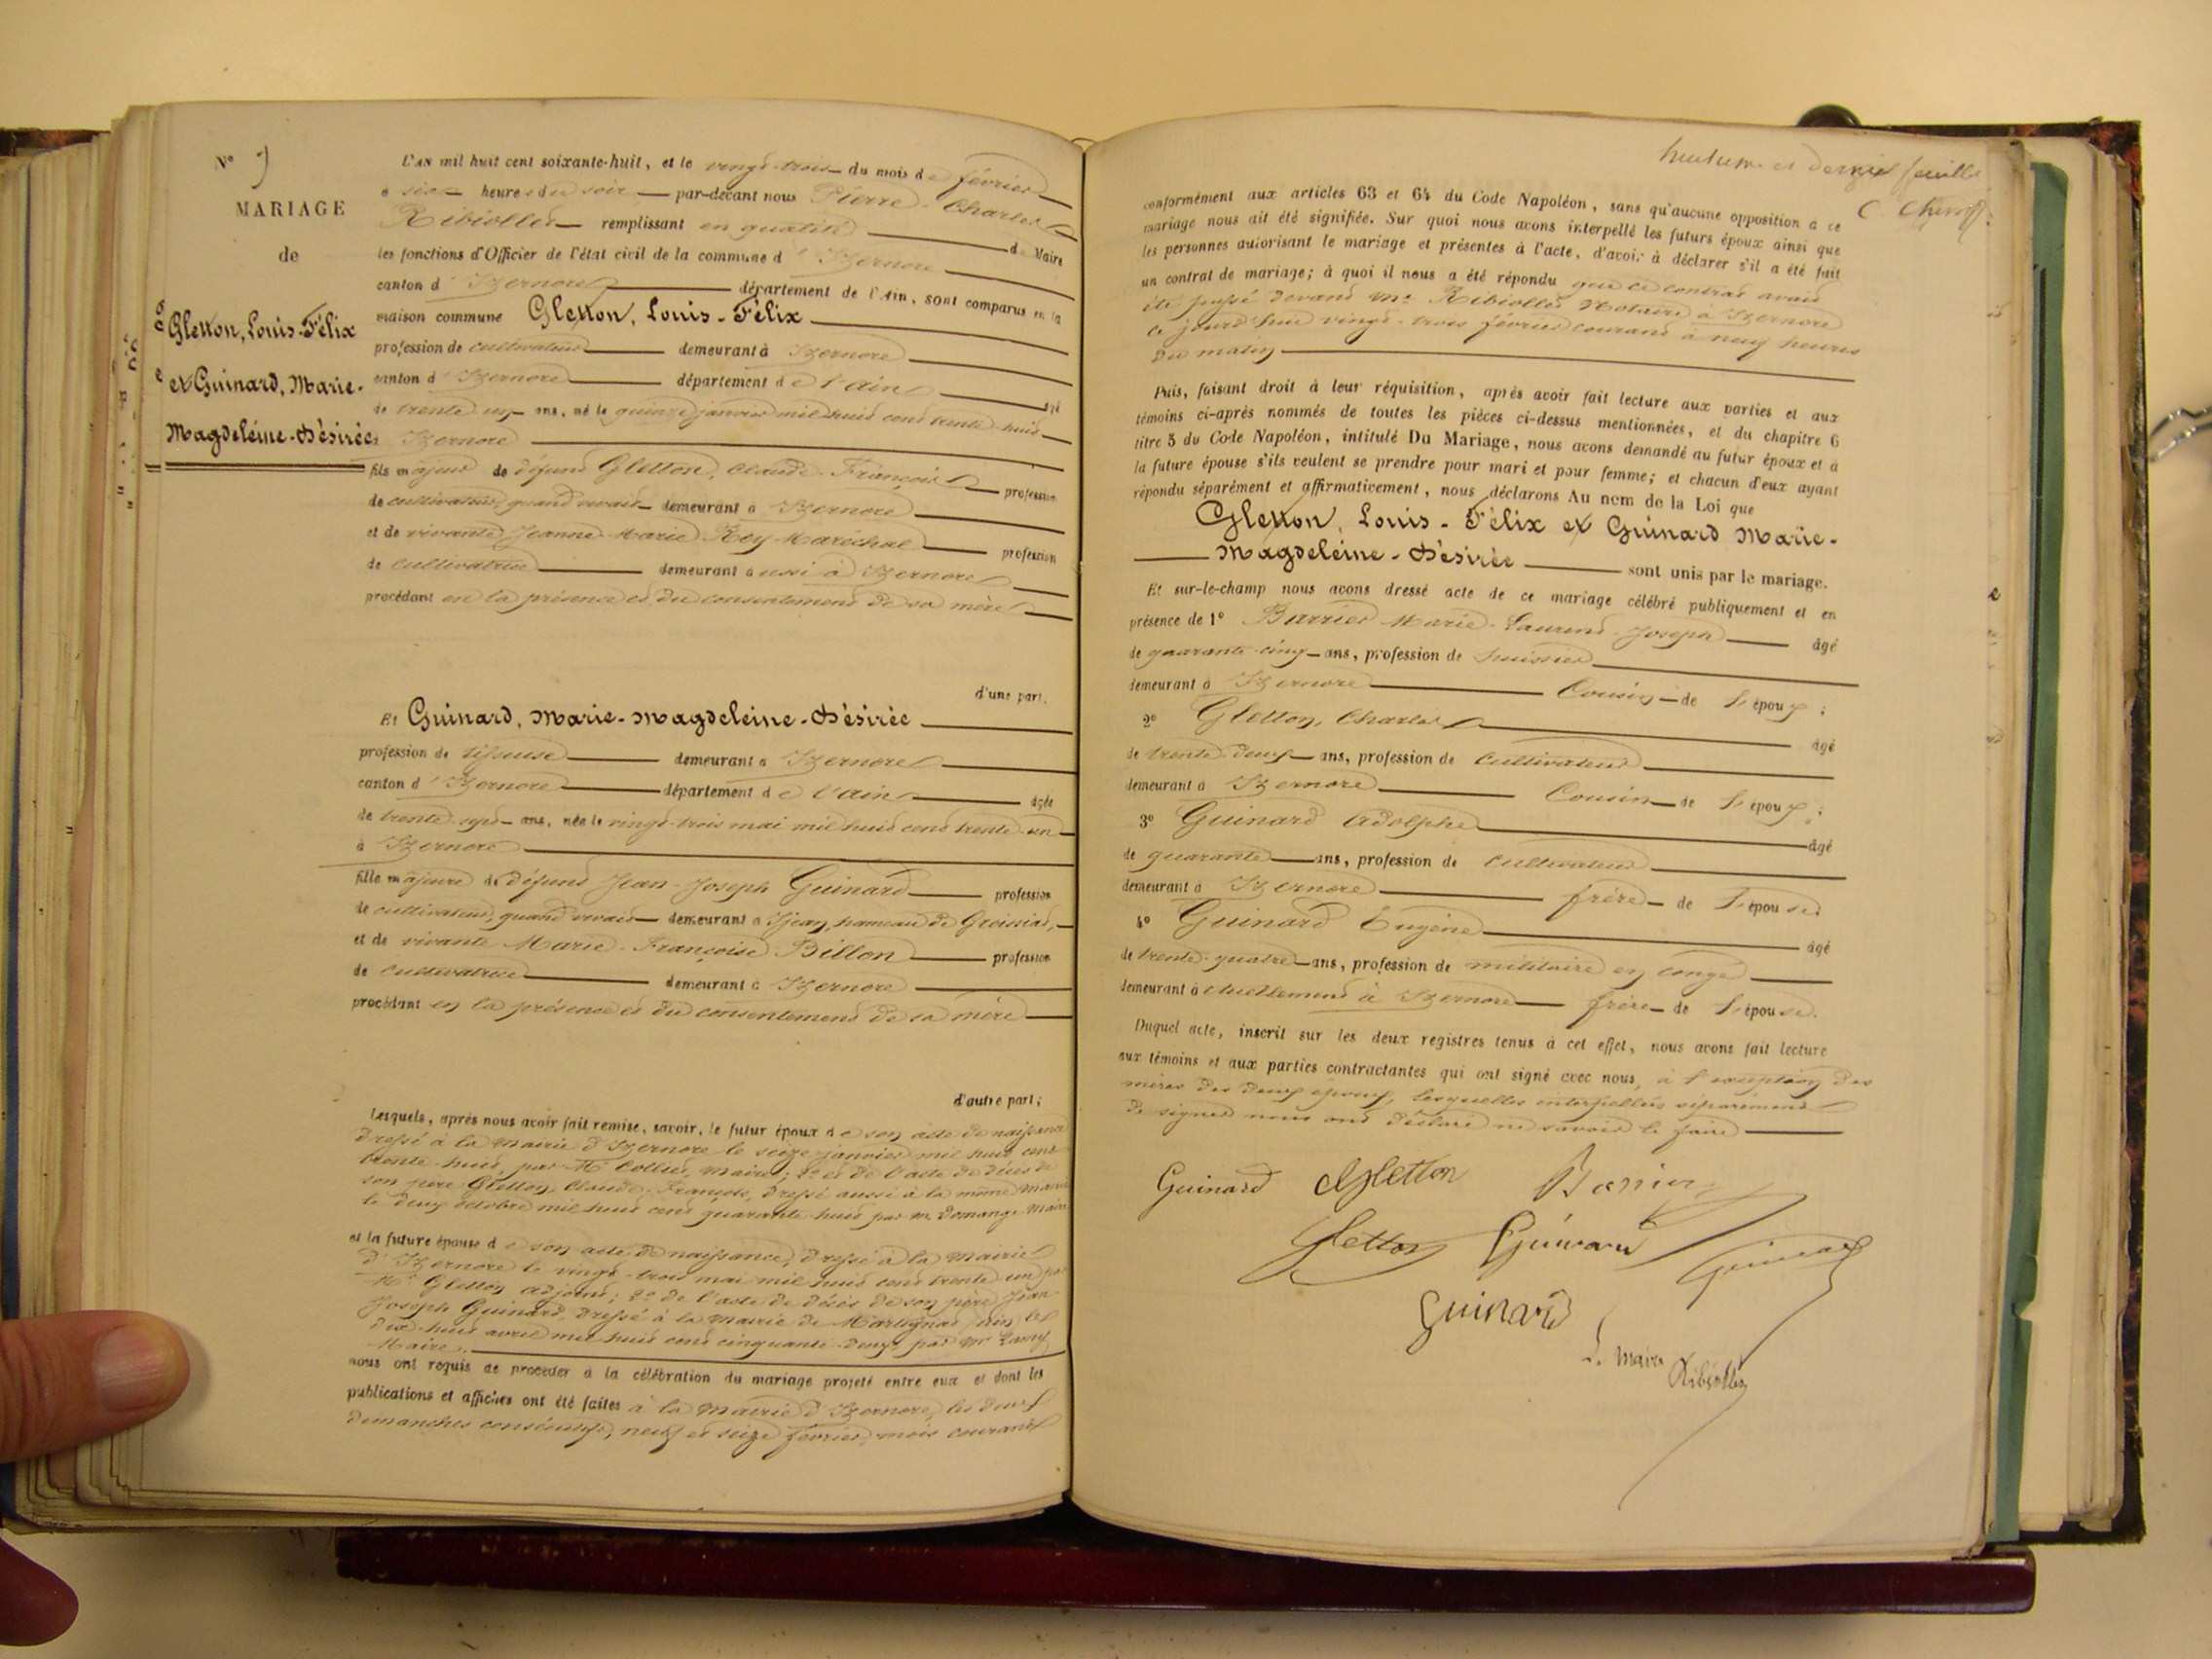 N° 9
MARIAGE
de
Gletton, Louis-Félix
et Guinard, Marie-
Magdeleine-Désirée
L'AN mil huit cent soixante-huit, et le vingt-trois du mois de février
à six heures du soir par-devant nous Pierre-Charles
Ribiollet remplissant en qualité de Maire
les fonctions d'Officier de l'état civil de la commune d'Izernore
canton d'Izernore département de l'Ain, sont comparus en la
maison commune Gletton, Louis-Félix
profession de cultivateur demeurant à Izernore
canton d'Izernore département de l'Ain âgé
de trente ans, né le quinze janvier mil huit cent trente-huit
à Izernore
fils majeur de défunt Gletton, Claude-François profession
de cultivateur, quand vivait demeurant à Izernore
et de vivante Jeanne-Marie Rey-Maréchal profession
de cultivatrice demeurant aussi à Izernore
procédant en la présence et du consentement de sa mère
d'une part.
Et Guinard, Marie-Magdeleine-Désirée
profession de tisseuse demeurant à Izernore
canton d'Izernore département de l'Ain âgée
de trente-sept ans, née le vingt-trois mai mil huit cent trente-un
à Izernore
fille majeure de défunt Jean-Joseph Guinard profession
de cultivateur, quand vivait demeurant à hameau de Groissiat,
et de vivante Marie-Françoise Billon profession
de cultivatrice demeurant à Izernore
procédant en la présence et du consentement de sa mère
d'autre part;
Lesquels, après nous avoir fait remise, savoir, le futur époux de son acte de naissance
dressé à la mairie d'Izernore le seize janvier mil huit cent
trente-huit, par Mr Collet, maire; 2° et de l'acte de décès de
son père Gletton, Claude-François, dressé aussi à la même mairie
le deux octobre mil huit cent quarante-huit par m. Domange maire
et la future épouse de son acte de naissance, dressé à la mairie
d'Izernore le vingt-trois mai mil huit cent trente-un par
Mr Gletton adjoint; 2° de l'acte de décès de son père Jean-
Joseph Guinard, dressé à la mairie de Martignat (Ain) le
dix-huit avril mil huit cent cinquante-deux par Mr
Maire.
nous ont requis de procéder à la célébration du mariage projeté entre eux et dont les
publications et affiches ont été faites à la mairie d'Izernore, les deux
dimanches consécutifs, neuf et seize février, mois courant
et dernier feuillet
conformément aux articles 63 et 64 du Code Napoléon, sans qu'aucune opposition à ce
mariage nous ait été signifiée. Sur quoi nous avons interpellé les futurs époux ainsi que
les personnes autorisant le mariage et présentes à l'acte, d'avoir à déclarer s'il a été fait
un contrat de mariage; à quoi il nous a été répondu que ce contrat avait
été passé devant Me Ribiollet Notaire à Izernore
ce jourd'hui vingt-trois février courant à neuf heures
du matin
Puis, faisant droit à leur réquisition, après avoir fait lecture aux parties et aux
témoins ci-après nommés de toutes les pièces ci-dessus mentionnées, et du chapitre 6
titre 5 du Code Napoléon, intitulé Du Mariage, nous avons demandé au futur époux et à
la future épouse s'ils veulent se prendre pour mari et pour femme; et chacun d'eux ayant
répondu séparément et affirmativement, nous déclarons Au nom de la Loi que
Gletton, Louis-Félix et Guinard Marie-
Magdeleine-Désirée sont unis par le mariage.
Et sur-le-champ nous avons dressé acte de ce mariage célébré publiquement et en
présence de 1° Barrier Marie-Laurent-Joseph âgé
de quarante-cinq ans, profession de huissier
demeurant à Izernore Cousin de l'époux;
2° Gletton, Charles âgé
de trente-deux ans, profession de cultivateur
demeurant à Izernore Cousin de l'époux;
3° Guinard Adolphe âgé
de quarante ans, profession de cultivateur
demeurant à Izernore frère de l'épouse
4° Guinard Eugène âgé
de trente-quatre ans, profession de militaire en congé
demeurant actuellement à Izernore frère de l'épouse.
Duquel acte, inscrit sur les deux registres tenus à cet effet, nous avons fait lecture
aux témoins et aux parties contractantes qui ont signé avec nous, à l'exception des
mères des deux époux, lesquelles interpellées séparément
de signer nous ont déclaré ne savoir le faire
Guinard Gletton Barrier
Gletton Guinard Guinard
Guinard
Le Maire
Ribiollet